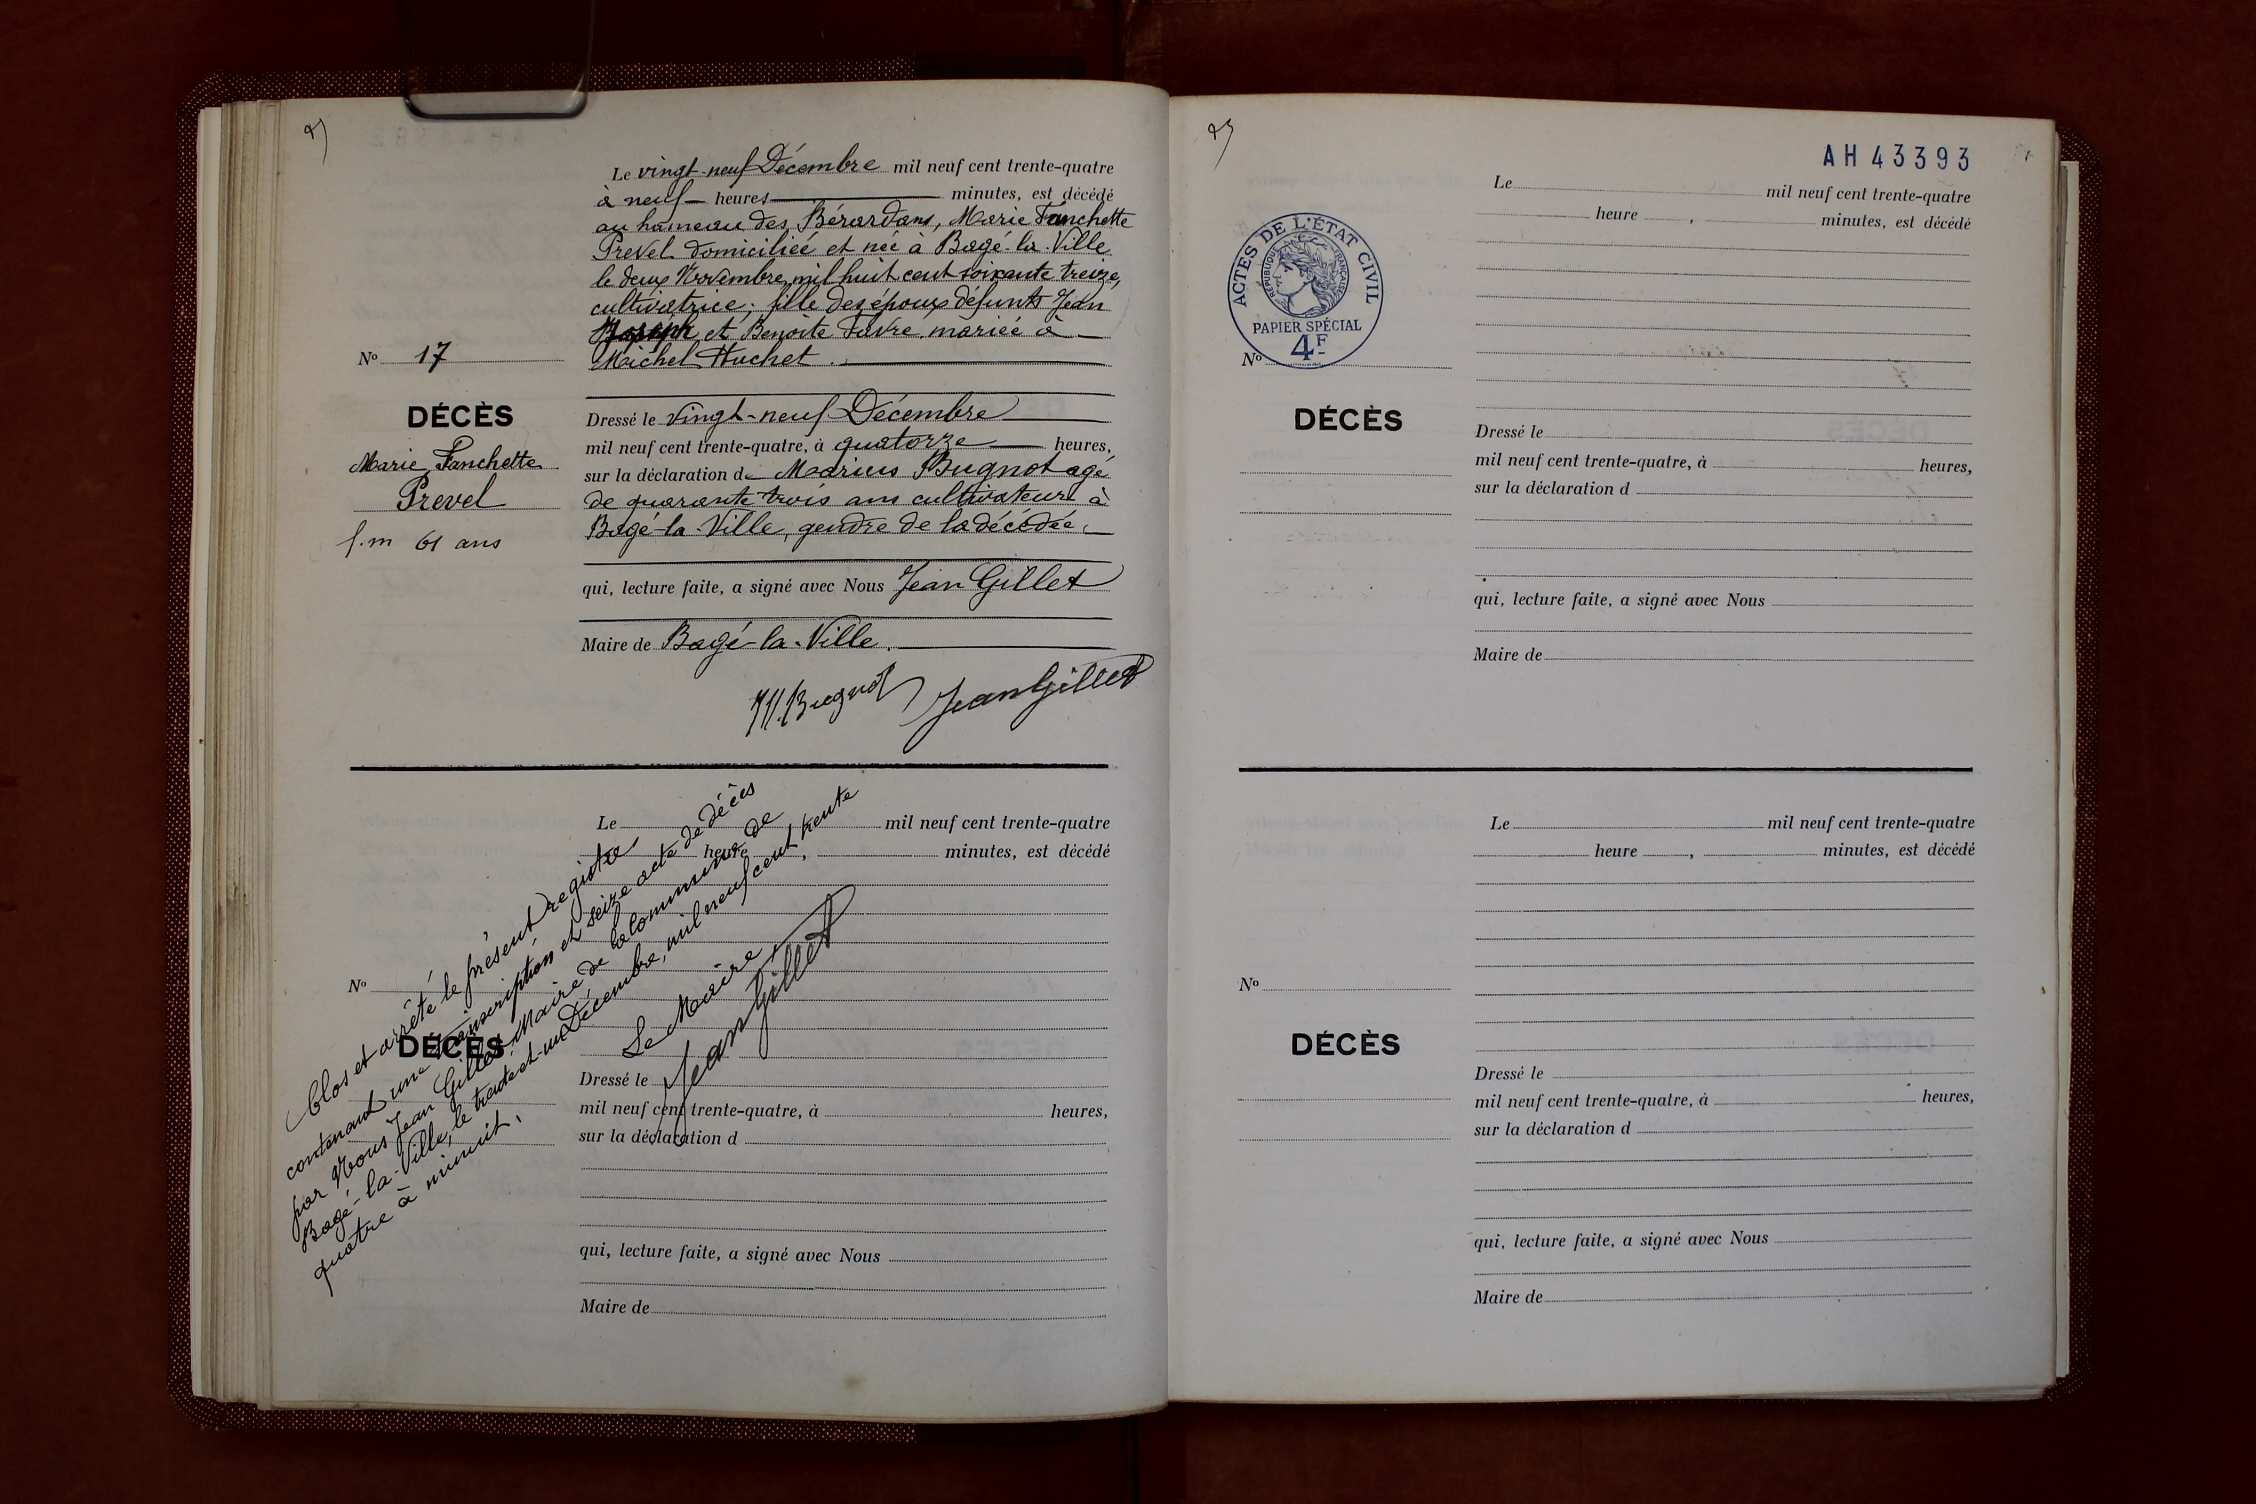 Le vingt-neuf Décembre mil neuf cent trente-quatre
à neuf heures minutes, est décédé
au hameau des Bérardans, Marie Fanchette
Prevel domiciliée et née à Bagé-la-Ville
le deux Novembre mil huit cent soixante treize,
cultivatrice; fille des époux défunts Jean
et Benoite Favre. mariée à
Michel Huchet.
No 17
DÉCÈS
Marie Fanchette
Prevel
f.m 61 ans
Dressé le vingt-neuf Décembre
mil neuf cent trente-quatre, à quatorze heures,
sur la déclaration de Marius Bugnot agé
de quarante trois ans cultivateur à
Bagé-la-Ville, gendre de la décédée.
qui, lecture faite, a signé avec Nous Jean Gillet
Maire de Bagé-la-Ville.
M. Bugnot Jean Gillet
Le mil neuf cent trente-quatre
heure , minutes, est décédé
No
DÉCÈS
Dressé le
mil neuf cent trente-quatre, à heures,
sur la déclaration d
qui, lecture faite, a signé avec Nous
Maire de
Clos et arrêté le présent registre
contenant une transcription et seize acte de décès
par Nous Jean Gillet Maire de la commune de
Bagé-la-Ville, le trente et un Décembre, mil neuf cent trente
quatre à minuit.
Le Maire
Jean Gillet
AH 43393
Le mil neuf cent trente-quatre
heure , minutes, est décédé
ACTES DE L'ÉTAT CIVIL
RÉPUBLIQUE FRANÇAISE
PAPIER SPÉCIAL
4F
No
DÉCÈS
Dressé le
mil neuf cent trente-quatre, à heures,
sur la déclaration d
qui, lecture faite, a signé avec Nous
Maire de
Le mil neuf cent trente-quatre
heure , minutes, est décédé
No
DÉCÈS
Dressé le
mil neuf cent trente-quatre, à heures,
sur la déclaration d
qui, lecture faite, a signé avec Nous
Maire de